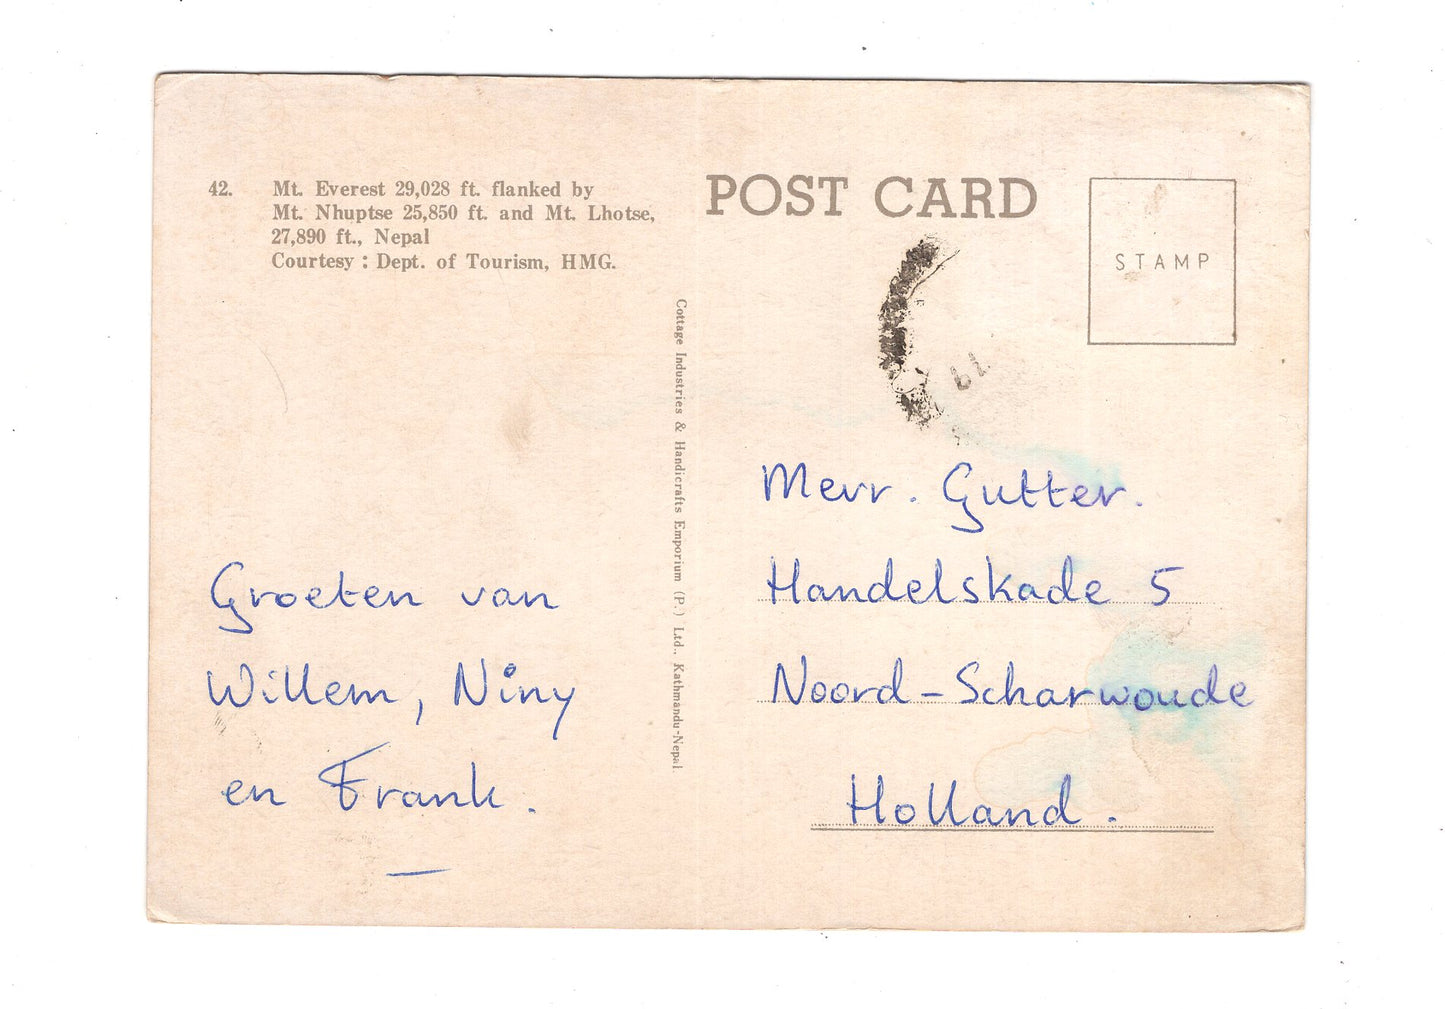 42. Mt. Everest 29,028 ft. flanked by
Mt. Nhuptse 25,850 ft. and Mt. Lhotse,
27,890 ft., Nepal
Courtesy : Dept. of Tourism, HMG.
Groeten van
Willem, Niny
en Frank.
Cottage Industries & Handicrafts Emporium (P.) Ltd., Kathmandu-Nepal.
POST CARD
STAMP
Mevr. Gutter.
Handelskade 5
Noord-Scharwoude
Holland.